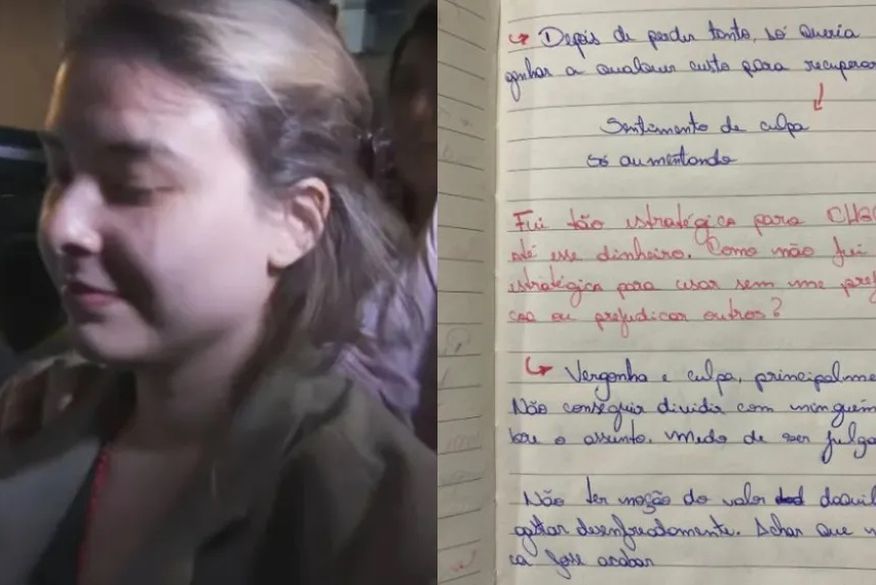 Depois de perder tanto, só queria
ganhar a qualquer custo para recuperar
Sentimento de culpa
só aumentando
Fui tão estratégica para CHEG
até esse dinheiro. Como não fui
estratégica para usar sem me prej
car ou prejudicar outros?
Vergonha e culpa, principalme
Não conseguir dividir com ninguém
bre o assunto. Medo de ser julga
Não ter noção do valor daquil
gastar desenfreadamente. Achar que n
ca fosse acabar